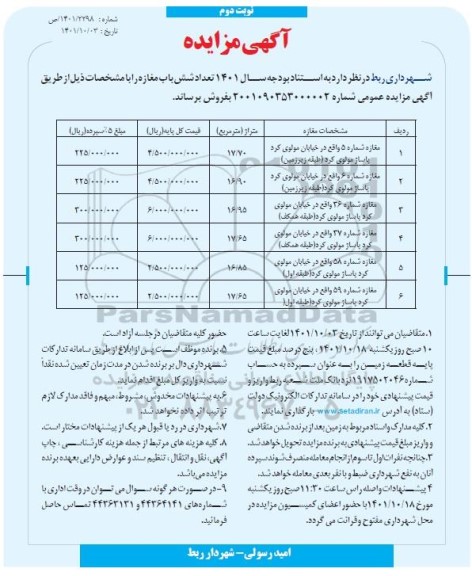 نوبت دوم
شماره : ۱۴۰۱/۲۲۹۸/ص
تاریخ : ۱۴۰۱/۱۰/۰۳
آگهی مزایده
شهرداری ربط در نظر دارد به استناد بودجه سال ۱۴۰۱ تعداد شش باب مغازه را با مشخصات ذیل از طریق
آگهی مزایده عمومی شماره ۲۰۰۱۰۹۰۳۵۳۰۰۰۰۰۲ بفروش برساند.
ردیف مشخصات مغازه متراژ (مترمربع) قیمت کل پایه(ریال) مبلغ ۵٪سپرده(ریال)
۱ مغازه شماره ۵ واقع در خیابان مولوی کرد ۱۷/۷۰ ۴/۵۰۰/۰۰۰/۰۰۰ ۲۲۵/۰۰۰/۰۰۰
پاساژ مولوی کرد(طبقه زیرزمین)
۲ مغازه شماره ۶ واقع در خیابان مولوی کرد ۱۶/۹۰ ۴/۵۰۰/۰۰۰/۰۰۰ ۲۲۵/۰۰۰/۰۰۰
پاساژ مولوی کرد(طبقه زیرزمین)
۳ مغازه شماره ۳۶ واقع در خیابان مولوی ۱۶/۹۵ ۶/۰۰۰/۰۰۰/۰۰۰ ۳۰۰/۰۰۰/۰۰۰
کرد پاساژ مولوی کرد(طبقه همکف)
۴ مغازه شماره ۳۷ واقع در خیابان مولوی ۱۷/۶۵ ۶/۰۰۰/۰۰۰/۰۰۰ ۳۰۰/۰۰۰/۰۰۰
کرد پاساژ مولوی کرد(طبقه همکف)
۵ مغازه شماره ۵۸ واقع در خیابان مولوی ۱۶/۸۵ ۲/۵۰۰/۰۰۰/۰۰۰ ۱۲۵/۰۰۰/۰۰۰
کرد پاساژ مولوی کرد(طبقه اول)
۶ مغازه شماره ۵۹ واقع در خیابان مولوی ۱۷/۶۵ ۲/۵۰۰/۰۰۰/۰۰۰ ۱۲۵/۰۰۰/۰۰۰
کرد پاساژ مولوی کرد(طبقه اول)
ParsNamadData
۱. متقاضیان می توانند از تاریخ ۱۴۰۱/۱۰/۰۳ لغایت ساعت
۱۰ صبح روز یکشنبه ۱۴۰۱/۱۰/۱۸ ، پنج درصد مبلغ قیمت
پایه قطعه زمین را به عنوان سپرده به حساب
شماره ۱۹۱۷۵۰۲۰۴۶ نزد بانک ملت شعبه ربط واریز و
قیمت پیشنهادی خود را در سامانه تدارکات الکترونیک دولت
(ستاد) به آدرس www.setadiran.ir بارگذاری نمایند.
۲. کلیه مدارک و اسناد مربوط به زمین بعد از برنده شدن متقاضی
و واریز مبلغ قیمت پیشنهادی به برنده مزایده تحویل خواهد شد.
۳. چنانچه نفرات اول تا سوم از انجام معامله منصرف شوند سپرده
آنان به نفع شهرداری ضبط و با نفر بعدی معامله خواهد شد.
۴ پیشنهادات واصله راس ساعت ۱۱:۳۰ صبح روز یکشنبه
مورخ ۱۴۰۱/۱۰/۱۸ با حضور اعضای کمیسیون مزایده در
محل شهرداری مفتوح و قرائت می گردد.
حضور کلیه متقاضیان در جلسه آزاد است.
۵. برنده موظف است پس از ابلاغ از طریق سامانه تدارکات
شهرداری دال بر برنده شدن در مدت زمان تعیین شده نقداً
نسبت به واریز کل مبلغ اقدام نمایند.
۶. به پیشنهادات مخدوش، مشروط، مبهم و فاقد مدارک لازم
ترتیب اثر داده نخواهد شد.
۷. شهرداری در رد یا قبول هر یک از پیشنهادات مختار است.
۸. کلیه هزینه های مرتبط از جمله هزینه کارشناسی ، چاپ
آگهی ، نقل و انتقال ، تنظیم سند و عوارض دارایی بعهده برنده
مزایده می باشد.
۹- در صورت هر گونه سوال می توان در وقت اداری با
شماره های ۴۴۳۶۴۱۴۱ و ۴۴۳۶۳۱۳۱ تماس حاصل
فرمائید.
امید رسولی - شهردار ربط